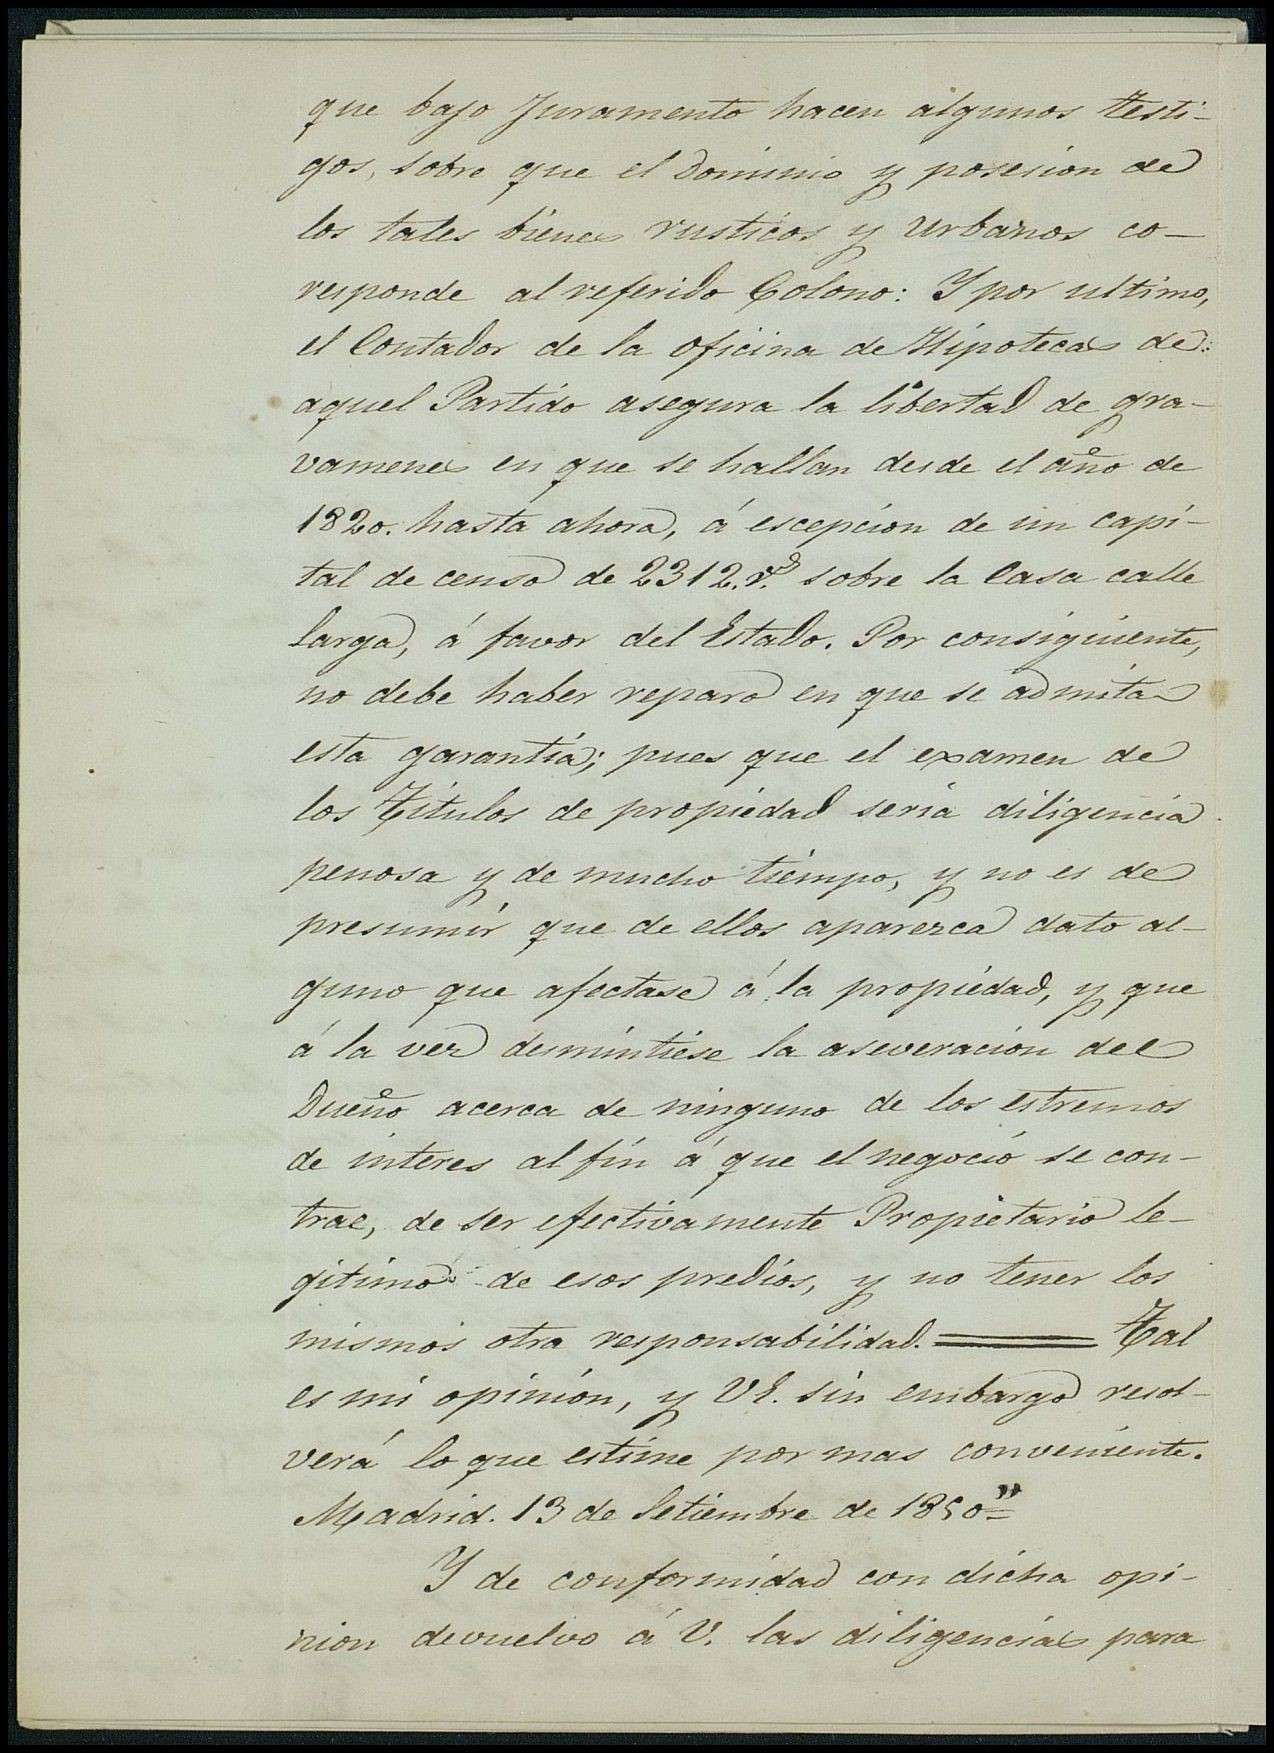 que bajo Juramento hacen algunos testi-
gos, sobre que el Dominio y posesion de
los tales bienes rusticos y urbanos co-
responde al referido Colono: Y por ultimo,
el Contador de la oficina de Hipotecas de
aquel Partido asegura la libertad de gra-
vamenes en que se hallan desde el año de
1820. hasta ahora, á escepcion de un capi-
tal de censo de 2312. rs. sobre la Casa calle
larga, á favor del Estado. Por consiguiente,
no debe haber reparo en que se admita
esta garantía; pues que el examen de
los Titulos de propiedad seria diligencia
penosa y de mucho tiempo, y no es de
presumir que de ellos aparezca dato al-
guno que afectase á la propiedad, y que
á la vez desmintiese la aseveracion del
Dueño acerca de ninguno de los estremos
de interes al fin á que el negocio se con-
trae, de ser efectivamente Propietario le-
gitimo de esos predios, y no tener los
mismos otra responsabilidad. ═══ Tal
es mi opinion, y VE. sin embargo resol-
verá lo que estime por mas conveniente.
Madrid. 13 de Setiembre de 1850"=
Y de conformidad con dicha opi-
nion devuelvo á V. las diligencias para